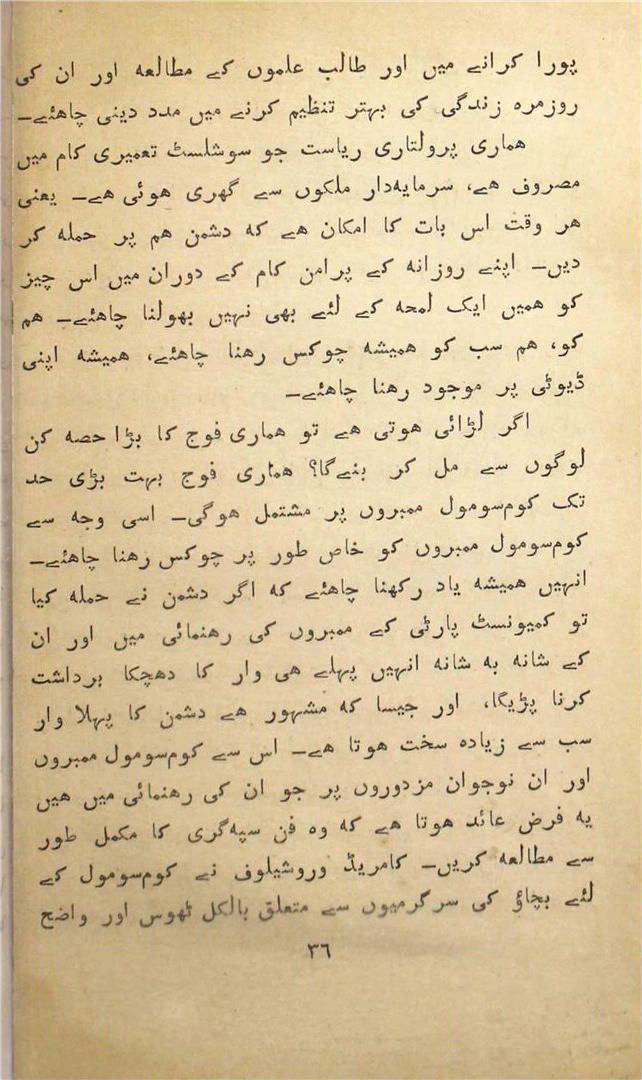 پورا کرانے میں اور طالب علموں کے مطالعہ اور ان کی
روزمرہ زندگی کی بہتر تنظیم کرنے میں مدد دینی چاھئے۔
ھماری پرولتاری ریاست جو سوشلسٹ تعمیری کام میں
مصروف ھے، سرمایہدار ملکوں سے گھری ھوئی ھے۔ یعنی
ھر وقت اس بات کا امکان ھے کہ دشمن ھم پر حملہ کر
دیں۔ اپنے روزانہ کے پرامن کام کے دوران میں اس چیز
کو ھمیں ایک لمحہ کے لئے بھی نہیں بھولنا چاھئے۔ ھم
کو، ھم سب کو ھمیشہ چوکس رھنا چاھئے، ھمیشہ اپنی
ڈیوٹی پر موجود رھنا چاھئے۔
اگر لڑائی ھوتی ھے تو ھماری فوج کا بڑا حصہ کن
لوگوں سے مل کر بنےگا؟ ھماری فوج بہت بڑی حد
تک کومسومول ممبروں پر مشتمل ھوگی۔ اسی وجہ سے
کومسومول ممبروں کو خاص طور پر چوکس رھنا چاھئے۔
انہیں ھمیشہ یاد رکھنا چاھئے کہ اگر دشمن نے حملہ کیا
تو کمیونسٹ پارٹی کے ممبروں کی رھنمائی میں اور ان
کے شانہ بہ شانہ انہیں پہلے ھی وار کا دھچکا برداشت
کرنا پڑیگا، اور جیسا کہ مشہور ھے دشمن کا پہلا وار
سب سے زیادہ سخت ھوتا ھے۔ اس سے کومسومول ممبروں
اور ان نوجوان مزدوروں پر جو ان کی رھنمائی میں ھیں
یہ فرض عائد ھوتا ھے کہ وہ فن سپہگری کا مکمل طور
سے مطالعہ کریں۔ کامریڈ وروشیلوف نے کومسومول کے
لئے بچاؤ کی سرگرمیوں سے متعلق بالکل ٹھوس اور واضح
۳٦